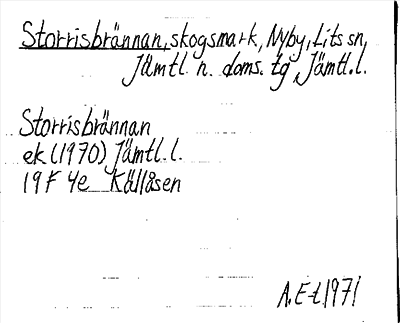 Storrisbrännan, skogsmark, Nyby, Lits sn,
Jämtl. n. doms. tg, Jämtl.l.
Storrisbrännan
ek (1970) Jämtl.l.
19F 4e Källåsen
A.E-t 1971